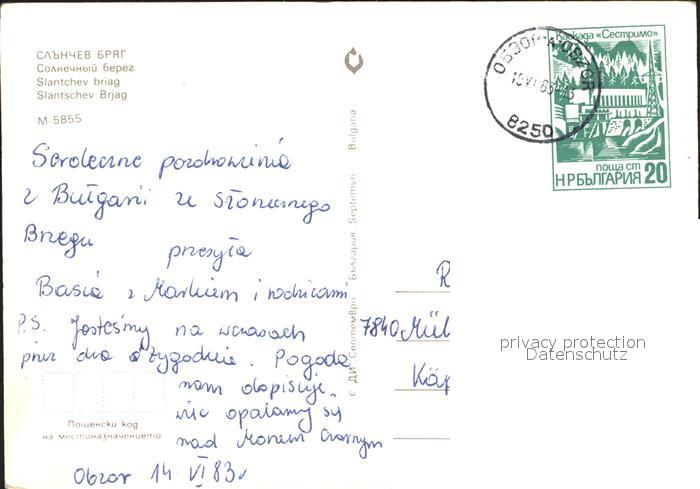 СЛЪНЧЕВ БРЯГ
Солнечный берег
Slantchev briag
Slantschev Brjag
М-5855
Serdeczne pozdrowienia
z Bułgarii ze Słonecznego
Brzegu
przesyła
Basia z Markiem i rodzicami
P.S. Jesteśmy na wczasach
przez dwa tygodnie. Pogoda
nam dopisuje.
więc opalamy się
nad Morzem Czarnym
Obzor 14 VI 83r
Пощенски код
на местоназначението
с ДИ „Септември" България Septemvri Bulgaria
каскада «Сестримо»
поща ст
НРБЪЛГАРИЯ 20
ОБЗОР
15.VI.83
8250
R
7840 Mül
Käp
privacy protection
Datenschutz